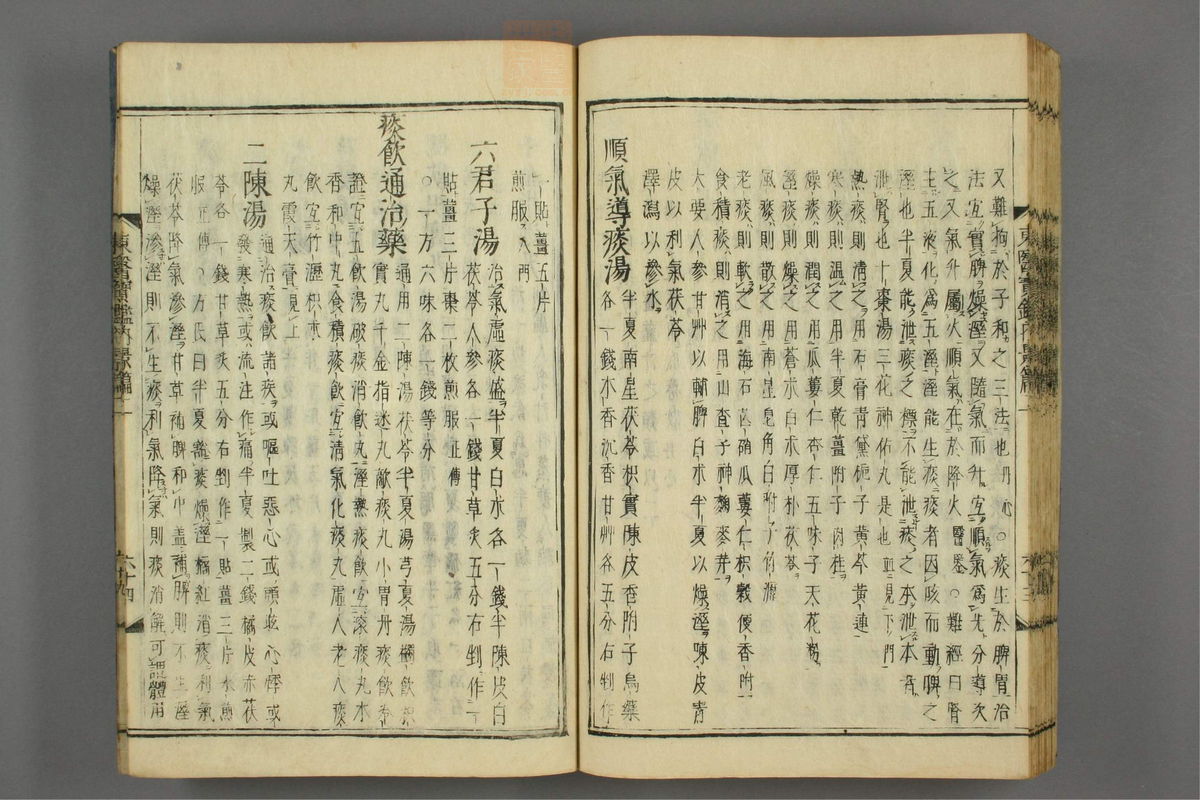 又難拘於子和之三法也丹心○痰生於脾胃治
法宜實脾燥濕又隨氣而升宜順氣爲先分導次
之又氣升屬火順氣在於降火醫鑑○難經曰腎
主五液化爲五濕能生痰痰者因咳而動脾之
濕也半夏能泄痰之標不能泄痰之本泄本者
泄腎也十棗湯三花神佑丸是也並見下門
熱痰則淸之用石膏靑黛梔子黃芩黃連
寒痰則溫之用半夏乾薑附子肉桂
燥痰則潤之用瓜蔞仁杏仁五味子天花粉
濕痰則燥之用蒼朮白朮厚朴茯苓
風痰則散之用南星皂角白附子竹瀝
老痰則軟之用海石芒硝瓜蔞仁枳殼便香附
食積痰則消之用山査子神麴麥芽
大要人參甘艸以輔脾白朮半夏以燥濕陳皮靑
皮以利氣茯苓
澤瀉以滲水
順氣導痰湯
半夏南星茯苓枳實陳皮香附子烏藥
各一錢木香沉香甘艸各五分右剉作
一貼薑五片
煎服入門
六君子湯
治氣虛痰盛半夏白朮各一錢半陳皮白
茯苓人參各一錢甘草灸五分右剉作一
貼薑三片棗二枚煎服正傳
○一方六味各一錢等分
痰飮通治藥
通用二陳湯茯苓半夏湯芎夏湯
實丸千金指迷丸敵痰丸小胃丹痰飮
證宜五飮湯破痰消飮丸濕熱痰飮宜滾痰丸木
香和中丸食積痰飮宜淸氣化痰丸虛人老人痰
飮宜竹瀝枳朮
丸霞天膏見上
二陳湯
通治痰飮諸疾或嘔吐惡心或頭眩心悸或
發寒熱或流注作痛半夏製二錢橘皮赤茯
苓各一錢甘草灸五分右剉作一貼薑三片水煎
服正傳○方氏曰半夏豁痰燥濕橘紅消痰利氣
茯苓降氣滲濕甘草補脾和中盖補脾則不生濕
燥濕滲濕則不生痰利氣降氣則痰消解可謂體用
東醫寶鑑內景篇
東醫寶鑑內景篇
六十四